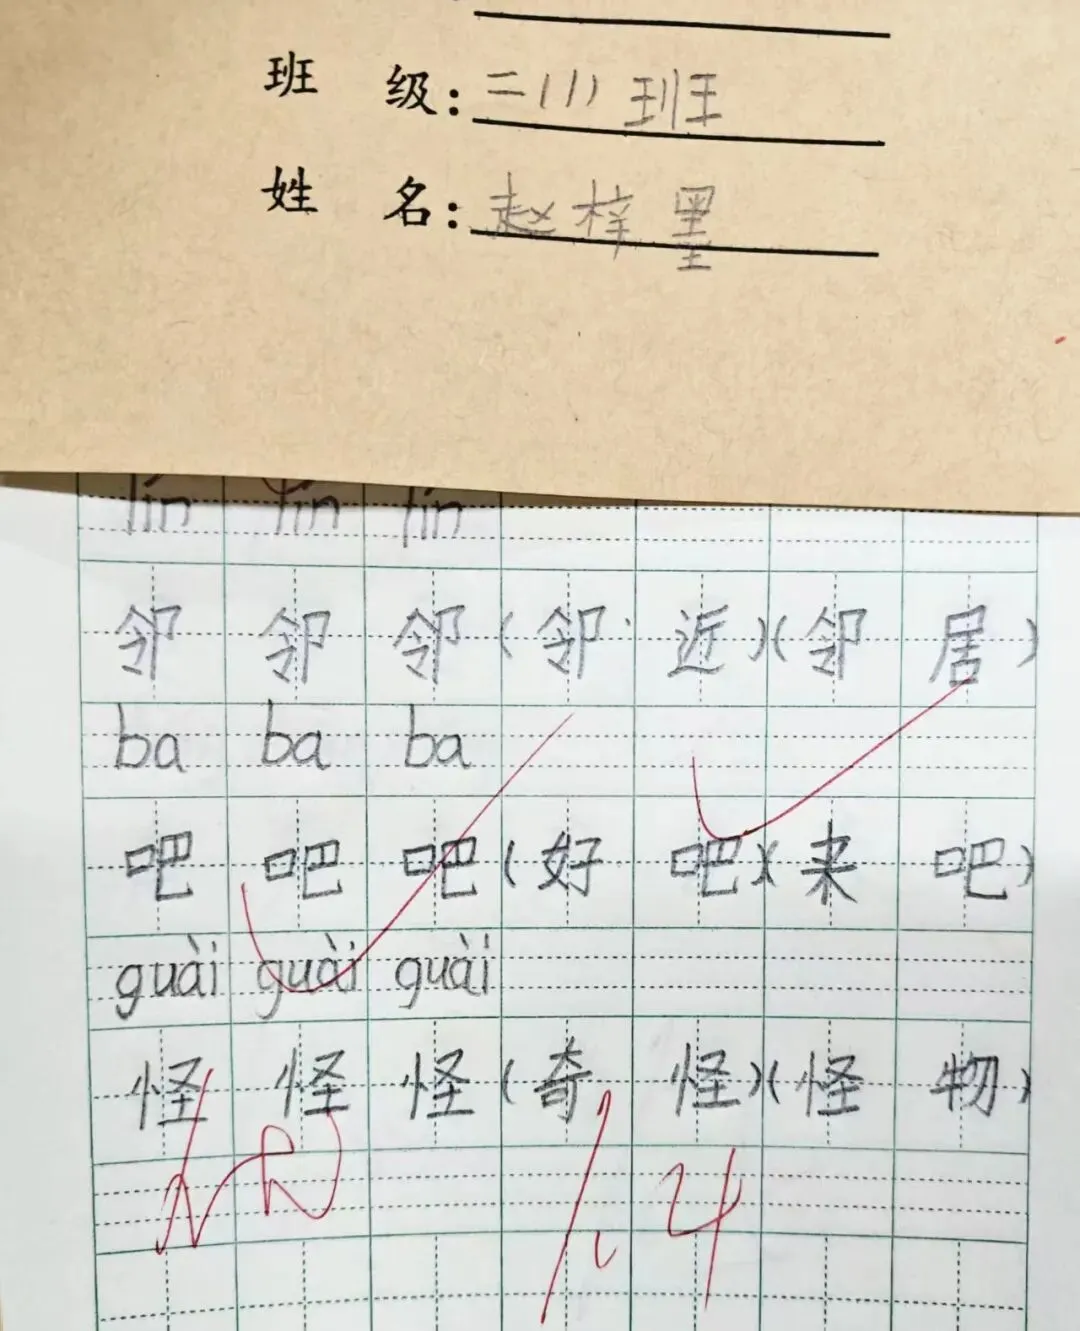 班 级: 二(1)班
姓 名: 赵梓墨
lín lín lín
邻 邻 邻 (邻 近)(邻 居)
ba ba ba
吧 吧 吧 (好 吧)(来 吧)
guài guài guài
怪 怪 怪 (奇 怪)(怪 物)